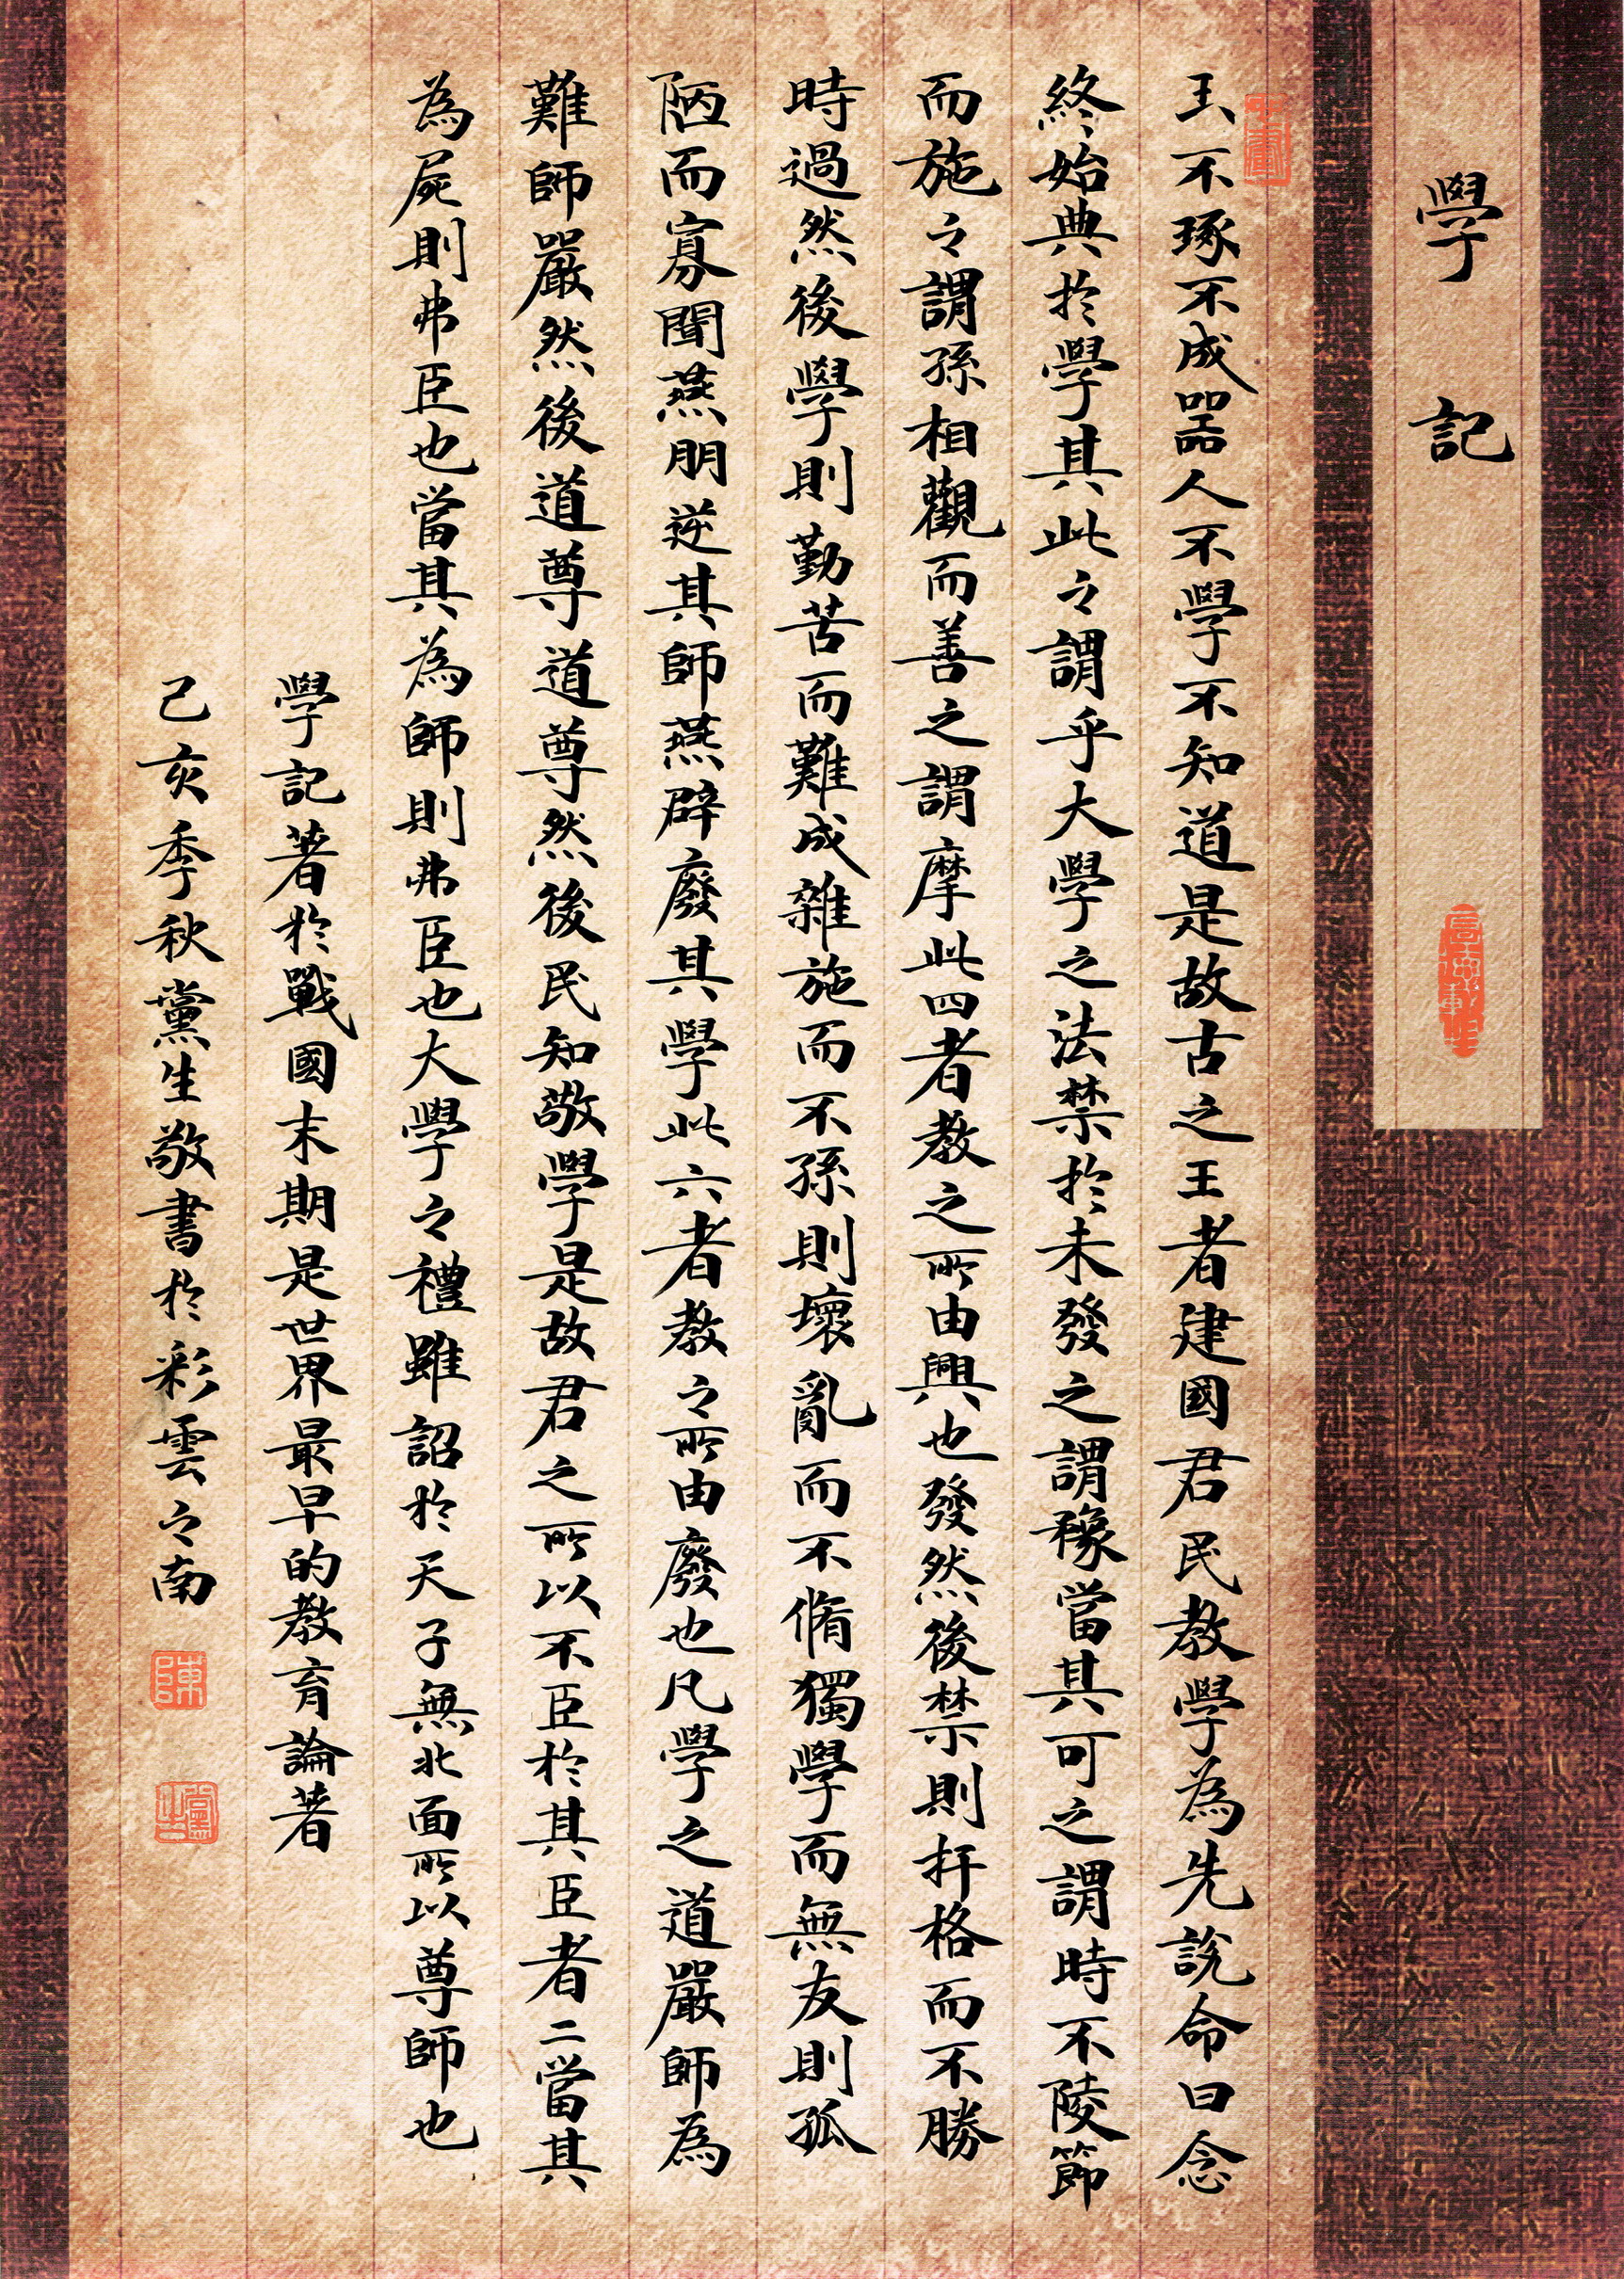 學記
玉不琢不成器人不學不知道是故古之王者建國君民教學為先說命曰念
終始典於學其此之謂乎大學之法禁於未發之謂豫當其可之謂時不陵節
而施之謂孫相觀而善之謂摩此四者教之所由興也發然後禁則扞格而不勝
時過然後學則勤苦而難成雜施而不孫則壞亂而不脩獨學而無友則孤
陋而寡聞燕朋逆其師燕辟廢其學此六者教之所由廢也凡學之道嚴師為
難師嚴然後道尊道尊然後民知敬學是故君之所以不臣於其臣者二當其
為屍則弗臣也當其為師則弗臣也大學之禮雖詔於天子無北面所以尊師也
學記著於戰國末期是世界最早的教育論著
己亥季秋黨生敬書於彩雲之南
陳
黨生